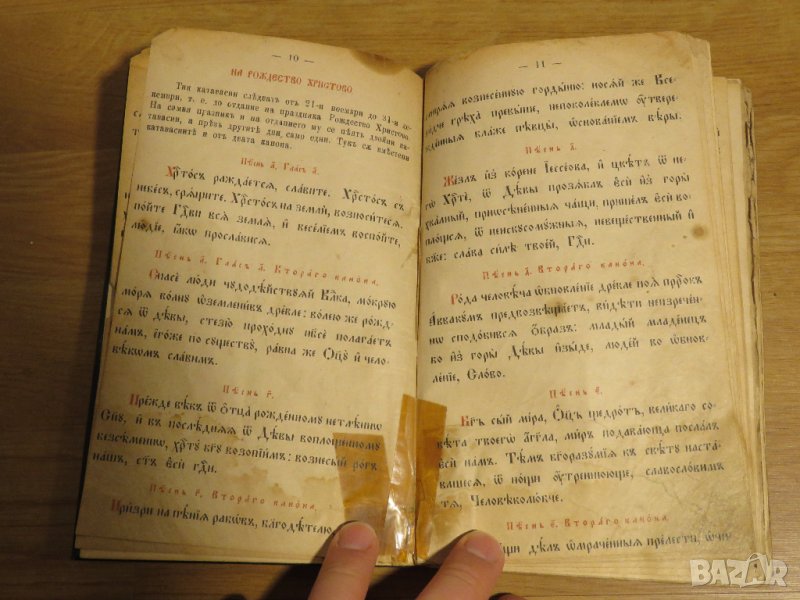 — 10 —
НА РОЖДЕСТВО ХРИСТОВО
Тия катавасии следватъ отъ 21-и ноемврий до 31-и де-
кемврий, т. е. до отдание на праздника Рождество Христово.
На самия празникъ и на отданието му се пѣятъ двойни ка-
тавасии, а презъ другитѣ дни само едни. Тукъ сѫ вмѣстени
катавасиитѣ и отъ двата канона.
Пѣснь а҃, Гласъ а҃.
Хрⷭ҇тосъ раждаетсѧ, славите. Хрⷭ҇тосъ съ
небесъ, срѧщите. Хрⷭ҇тосъ на земли, возноситесѧ.
пойте Гдⷭ҇ви всѧ землѧ, и҆ веселїемъ воспойте,
людїе, ꙗ҆кѡ прослависѧ.
Пѣснь а҃. Гласъ а҃. Втораго канона.
Спасе люди чудодѣйствуѧй Влⷣка, мокрую
морѧ волну ѡ҆земленивъ древле: волею же рожд-
сѧ ѿ дѣвы, стезю проходну нб҃се полагаетъ
намъ. Е҆гоже по существу, равна же Оц҃у и҆ чело-
вѣкѡмъ славимъ.
Пѣснь г҃.
Прежде вѣкъ ѿ ѻ҆тца рожденному нетлѣннѡ
Сн҃у, и҆ въ послѣднѧѧ ѿ Дѣвы воплощенному
безсѣменнѡ, хрⷭ҇ту бг҃у возопїимъ: вознесый рогъ
нашъ, ст҃ъ є҆си гдⷭ҇и.
Пѣснь г҃. Втораго канона.
Призри на пѣнїѧ рабѡвъ, благодѣтелю
— 11 —
мирѧѧ вознесенную гордыню: носѧй же Все-
видче грѣха превыше, непоколеблемѡ ѹ҆твер-
жденныѧ блаже пѣвцы, ѡ҆снованїемъ вѣры.
Пѣснь д҃.
Жезлъ из корене Іессеова, и҆ цвѣтъ ѿ не-
гѡ Хрⷭ҇тѐ, ѿ Дѣвы прозѧблъ є҆си из горы
хвальный, приѡсѣненныѧ чащи, пришелъ є҆си во-
площсѧ, ѿ неискусомужныѧ, невещественный и҆
бже: слава силѣ твоей, Гдⷭ҇и.
Пѣснь д҃. Втораго канона.
Рода человѣча ѡ҆бновленїе древле поѧ пррⷪ҇къ
Аввакумъ предвозвѣщаетъ, видѣти неизречен-
нѡ сподобивсѧ ѻ҆бразъ: младый младенецъ
бо из горы Дѣвы изыде, людей во ѡ҆бнов-
ленїе, Слово.
Пѣснь є҃.
Бг҃ъ сый мира, Оц҃ъ щедротъ, великаго со-
вѣта твоегѡ а҆гг҃ла, миръ подавающа послалъ
є҆си намъ. Тѣмъ бг҃оразумїѧ къ свѣту наста-
вльшесѧ, ѿ нощи ѹ҆тренююще, славословимъ
тѧ, Человѣколюбче.
Пѣснь є҃. Втораго канона.
нощи дѣлъ ѡ҆мраченныѧ прелести, ѡ҆чи-
BAZAR